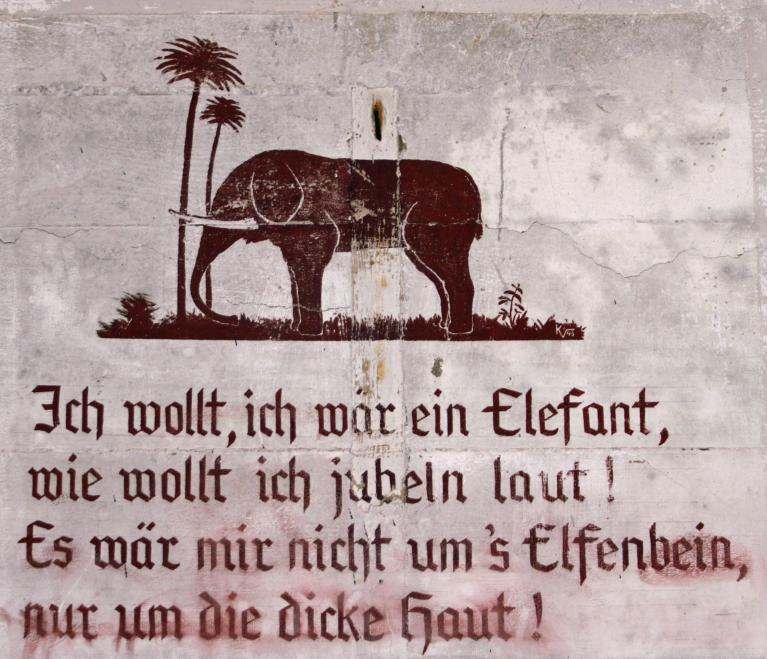 Ich wollt, ich wär ein Elefant,
wie wollt ich jubeln laut!
Es wär mir nicht um's Elfenbein,
nur um die dicke Haut!